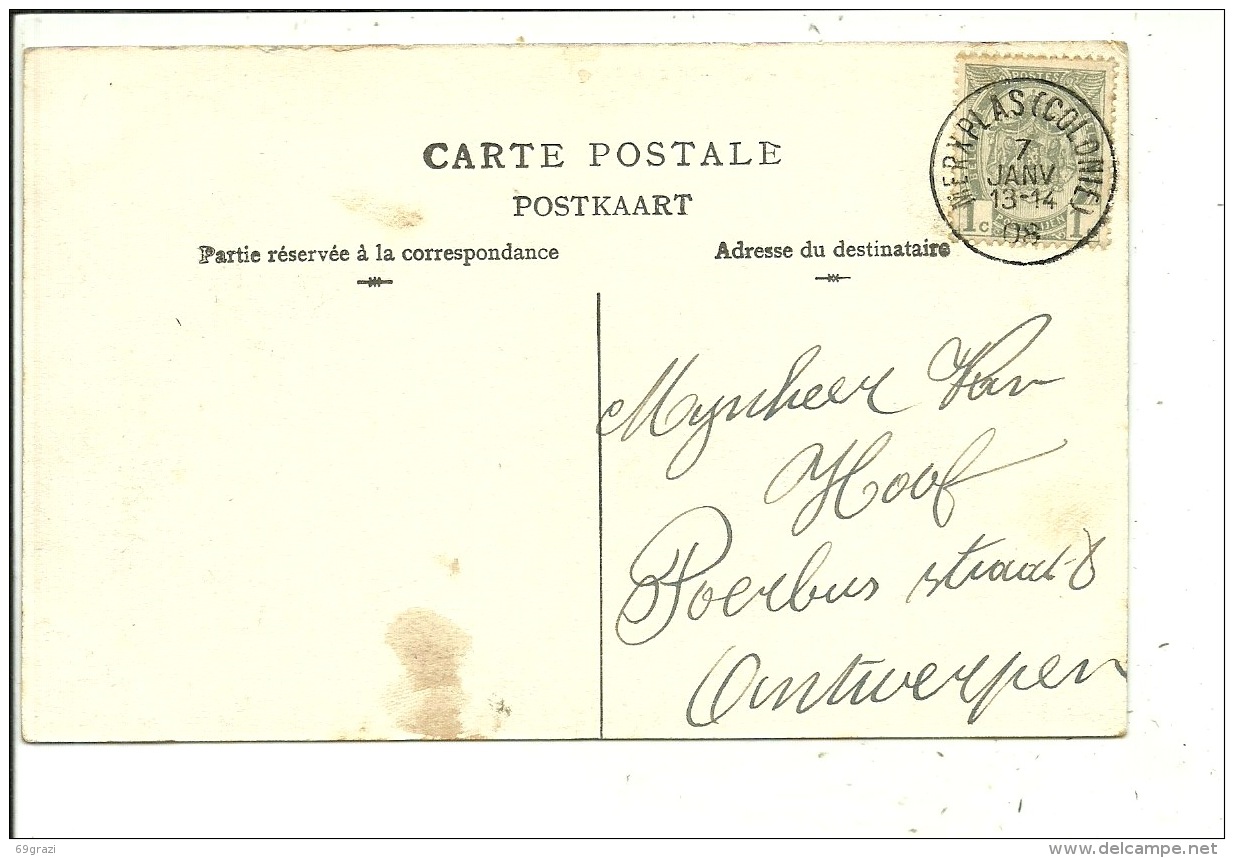 CARTE POSTALE
POSTKAART
Partie réservée à la correspondance
Adresse du destinataire
POSTES
MERXPLAS (COLONIE)
7
JANV
13-14
08
1 C 1
Mynheer Van
Hoof
Poerbus straat 8
Antwerpen
69grazi
delcampe.net